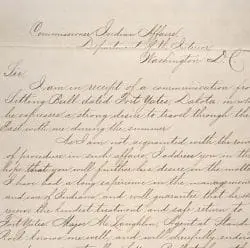 Commissioner Indian Affairs
Department of the Interior
Washington D.C
Sir
I am in receipt of a communication from
Sitting Bull dated Fort Yates, Dakota, in wh
he expresses a strong desire to travel through the
East with me during the summer
As I am not acquainted with the
of procedure in such affairs, I address you in the
hope that you will further his desire in the matter
I have had a long experience in the management
and care of Indians, and will guarantee that he sh
receive the kindest treatment and safe return to
Fort Yates Major McLaughlin, Agent at Stand
Rock knows me well and will cheerfully end